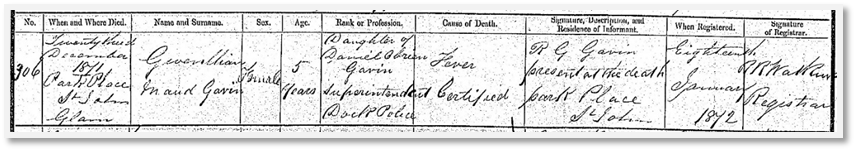 No. When and Where Died. Name and Surname. Sex. Age. Rank or Profession. Cause of Death. Signature, Description, and Residence of Informant. When Registered. Signature of Registrar.
306
Twenty third
December
1871
Park Place
St John
Glam
Gwenllian
Maud Gavin
Female
5
Years
Daughter of
Daniel O'Brien
Gavin
Superintendent
Dock Police
Fever
Certified
R G Gavin
present at the death
Park Place
St Johns
Eighteenth
January
1872
Registrar